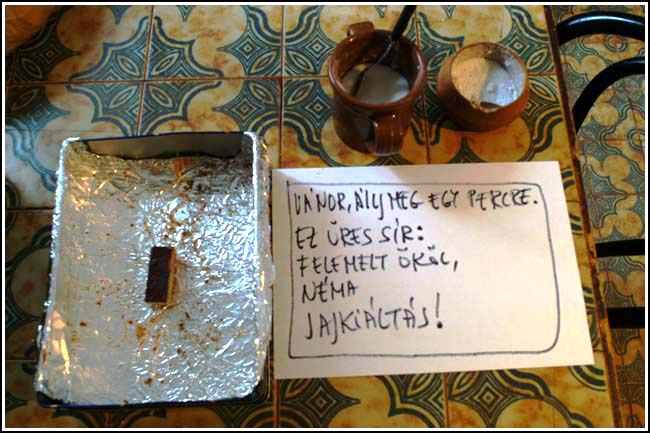 VÁNOR, ÁLLJ MEG EGY PERCRE.
EZ ÜRES SÍR:
FELEMELT ÖKÖL,
NÉMA
JAJKIÁLTÁS!